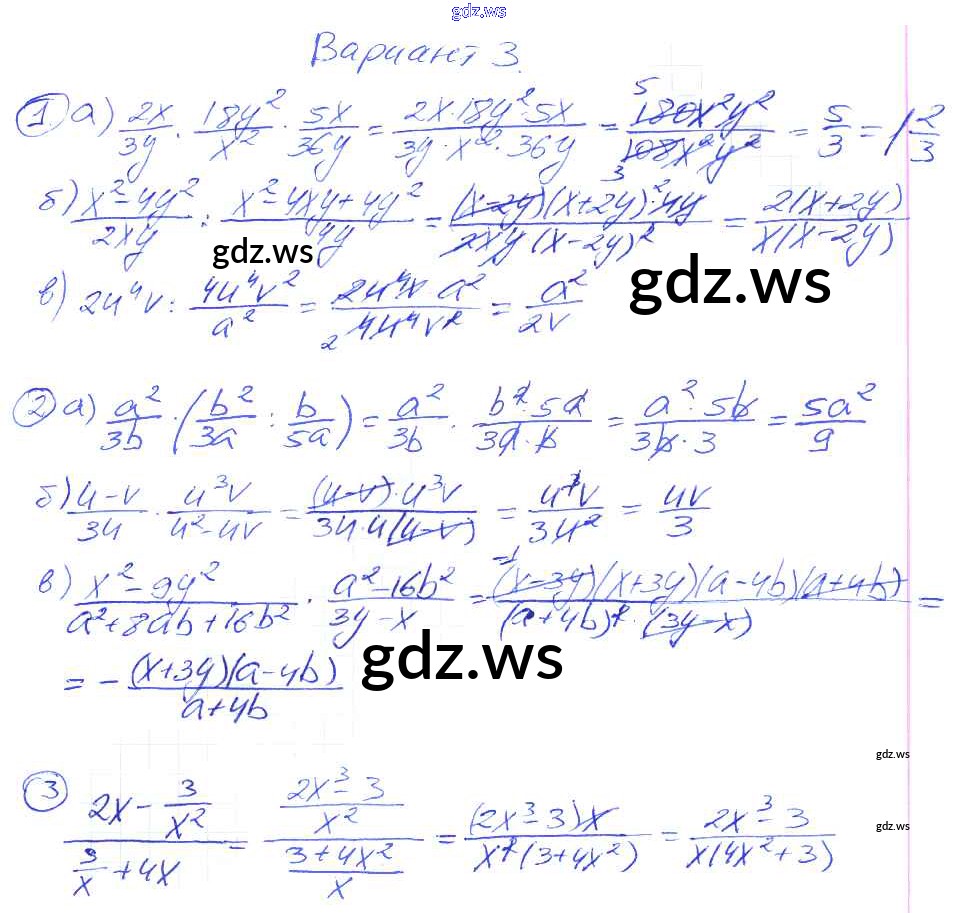 gdz.ws
Вариант 3.
1 а) 2x/3y · 18y²/x² · 5x/36y = 2x·18y²·5x/3y·x²·36y = 180x²y²/108x²y² = 5/3 = 1 2/3
б) x²-4y²/2xy : x²-4xy+4y²/4y = (x-2y)(x+2y)·4y/2xy(x-2y)² = 2(x+2y)/x(x-2y)
gdz.ws
gdz.ws
в) 2u⁴v : 4u⁴v²/a² = 2u⁴v·a²/4u⁴v² = a²/2v
2 а) a²/3b · (b²/3a : b/5a) = a²/3b · b²·5a/3a·b = a²·5b/3b·3 = 5a²/9
б) u-v/3u · u³v/u²-uv = (u-v)·u³v/3u·u(u-v) = u³v/3u² = uv/3
в) x²-9y²/a²+8ab+16b² · a²-16b²/3y-x = (x-3y)(x+3y)(a-4b)(a+4b)/(a+4b)²·(3y-x) =
= -(x+3y)(a-4b)/a+4b
gdz.ws
gdz.ws
3 2x - 3/x² / 3/x + 4x = 2x³-3/x² / 3+4x²/x = (2x³-3)x/x²(3+4x²) = 2x³-3/x(4x²+3)
gdz.ws